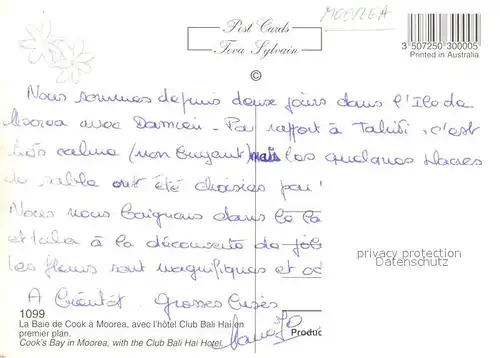 MOOREA
Post Cards
Teva Sylvain
3 507250 300005
Printed in Australia
©
Nous sommes depuis deux jours dans l'Ile de
Moorea avec Damien - Par rapport à Tahiti, c'est
très calme (non bruyant) mais les quelques places
de sable ont été choisies par
Nous nous baignons dans le la
et à la découverte de
Les fleurs sont magnifiques et
A Bientôt. Grosses bises
privacy protection
Datenschutz
1099
La Baie de Cook à Moorea, avec l'hôtel Club Bali Hai en
premier plan.
Cook's Bay in Moorea, with the Club Bali Hai Hotel.
Produc